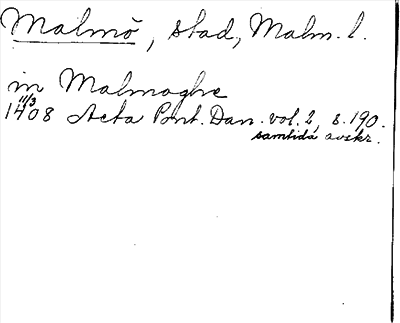 Malmö, stad, Malm. l.
in Malmoghe
11/3
1408 Acta Pont. Dan. vol. 2, s. 190.
samtida avskr.